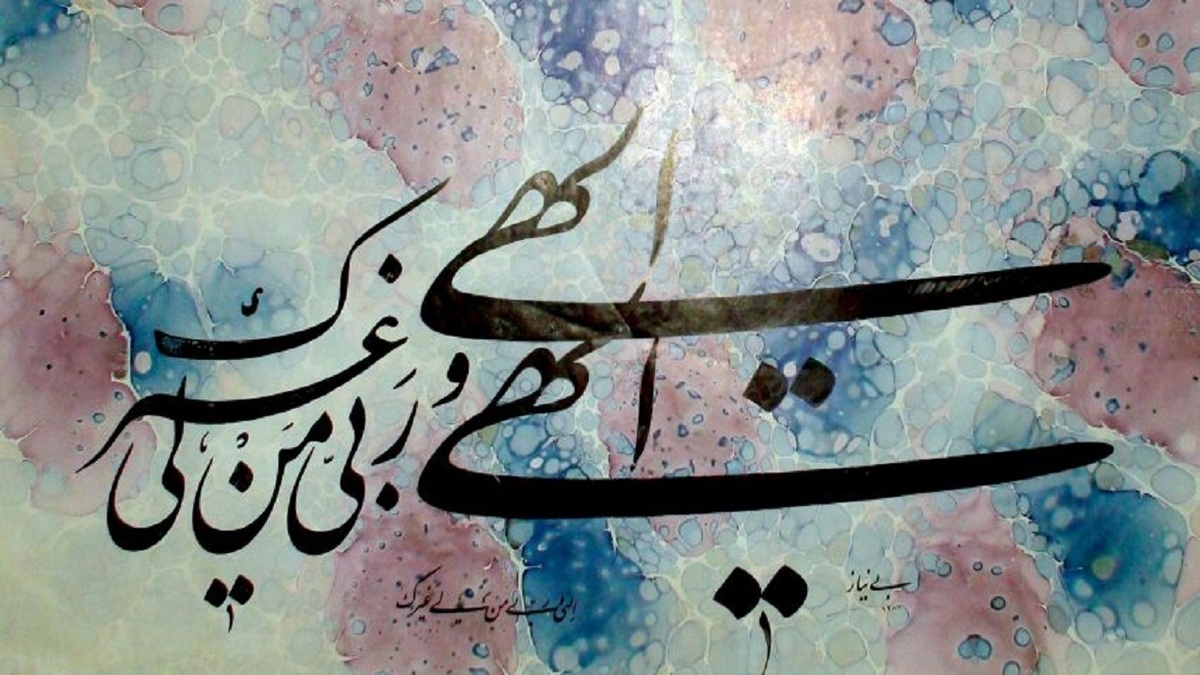 الهی
الهی و رَبّی مَنْ لی غیرک
الهی و ربی من لی غیرک
بی نیاز